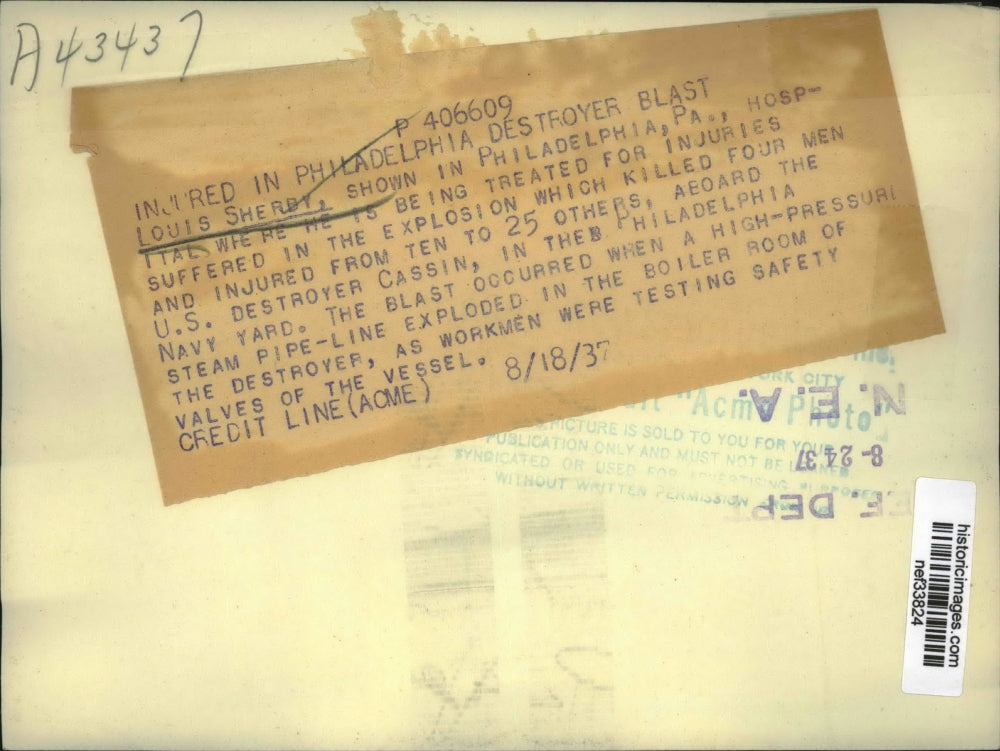 A43437
P 406609
INJURED IN PHILADELPHIA DESTROYER BLAST
LOUIS SHERBY, SHOWN IN PHILADELPHIA, PA., HOSP-
ITAL WHERE HE IS BEING TREATED FOR INJURIES
SUFFERED IN THE EXPLOSION WHICH KILLED FOUR MEN
AND INJURED FROM TEN TO 25 OTHERS, ABOARD THE
U.S. DESTROYER CASSIN, IN THEB PHILADELPHIA
NAVY YARD. THE BLAST OCCURRED WHEN A HIGH-PRESSURE
STEAM PIPE-LINE EXPLODED IN THE BOILER ROOM OF
THE DESTROYER, AS WORKMEN WERE TESTING SAFETY
VALVES OF THE VESSEL.
CREDIT LINE (ACME) 8/18/37
YORK CITY
"Acme Photo"
PICTURE IS SOLD TO YOU FOR YOUR
PUBLICATION ONLY AND MUST NOT BE LOANED
SYNDICATED OR USED FOR ADVERTISING PURPOSES
WITHOUT WRITTEN PERMISSION
N. E. A.
8-2437
EF. DEPT
historicimages.com
nef33824